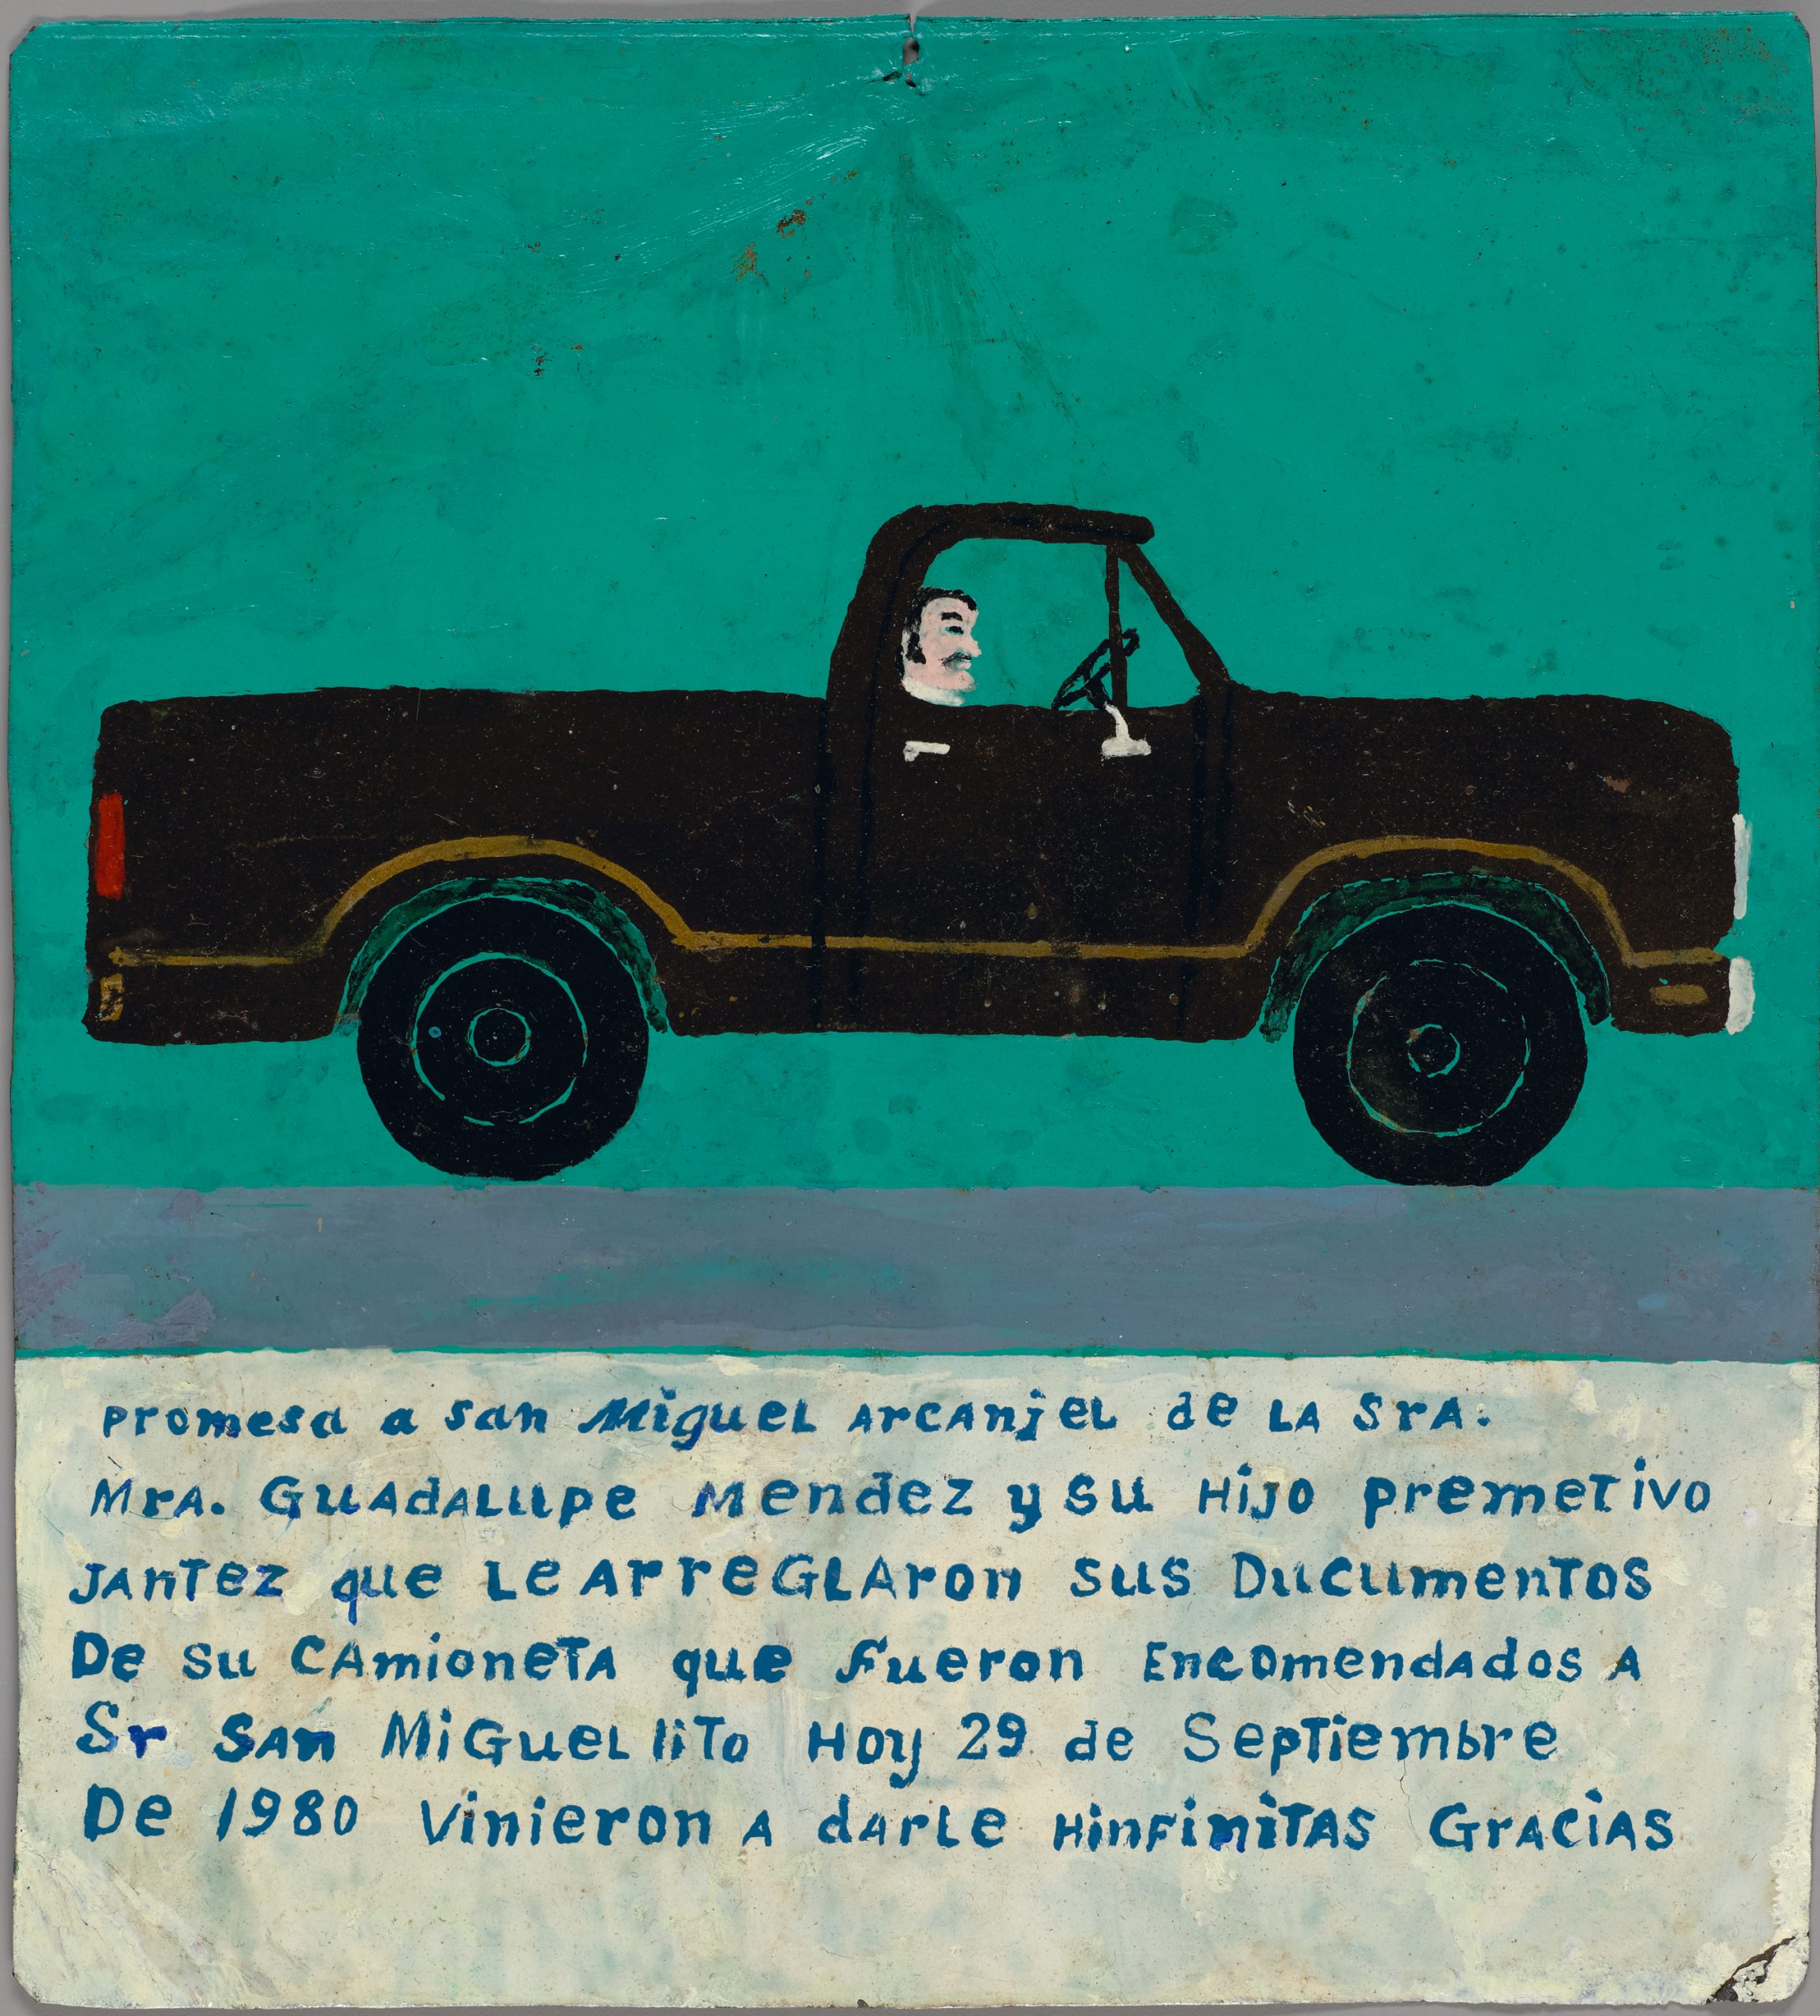 Promesa a san Miguel Arcanjel de LA SrA.
MrA. GUAdALUpe Mendez y su Hijo Premetivo
JAnTez que Le ArreGLAron sus DucumenTos
De su CAmioneTA que Fueron EncomendAdos A
Sr SAn MiGueLliTo Hoy 29 de SepTiembre
De 1980 Vinieron A dArLe HinFiniTAS GrACiAS